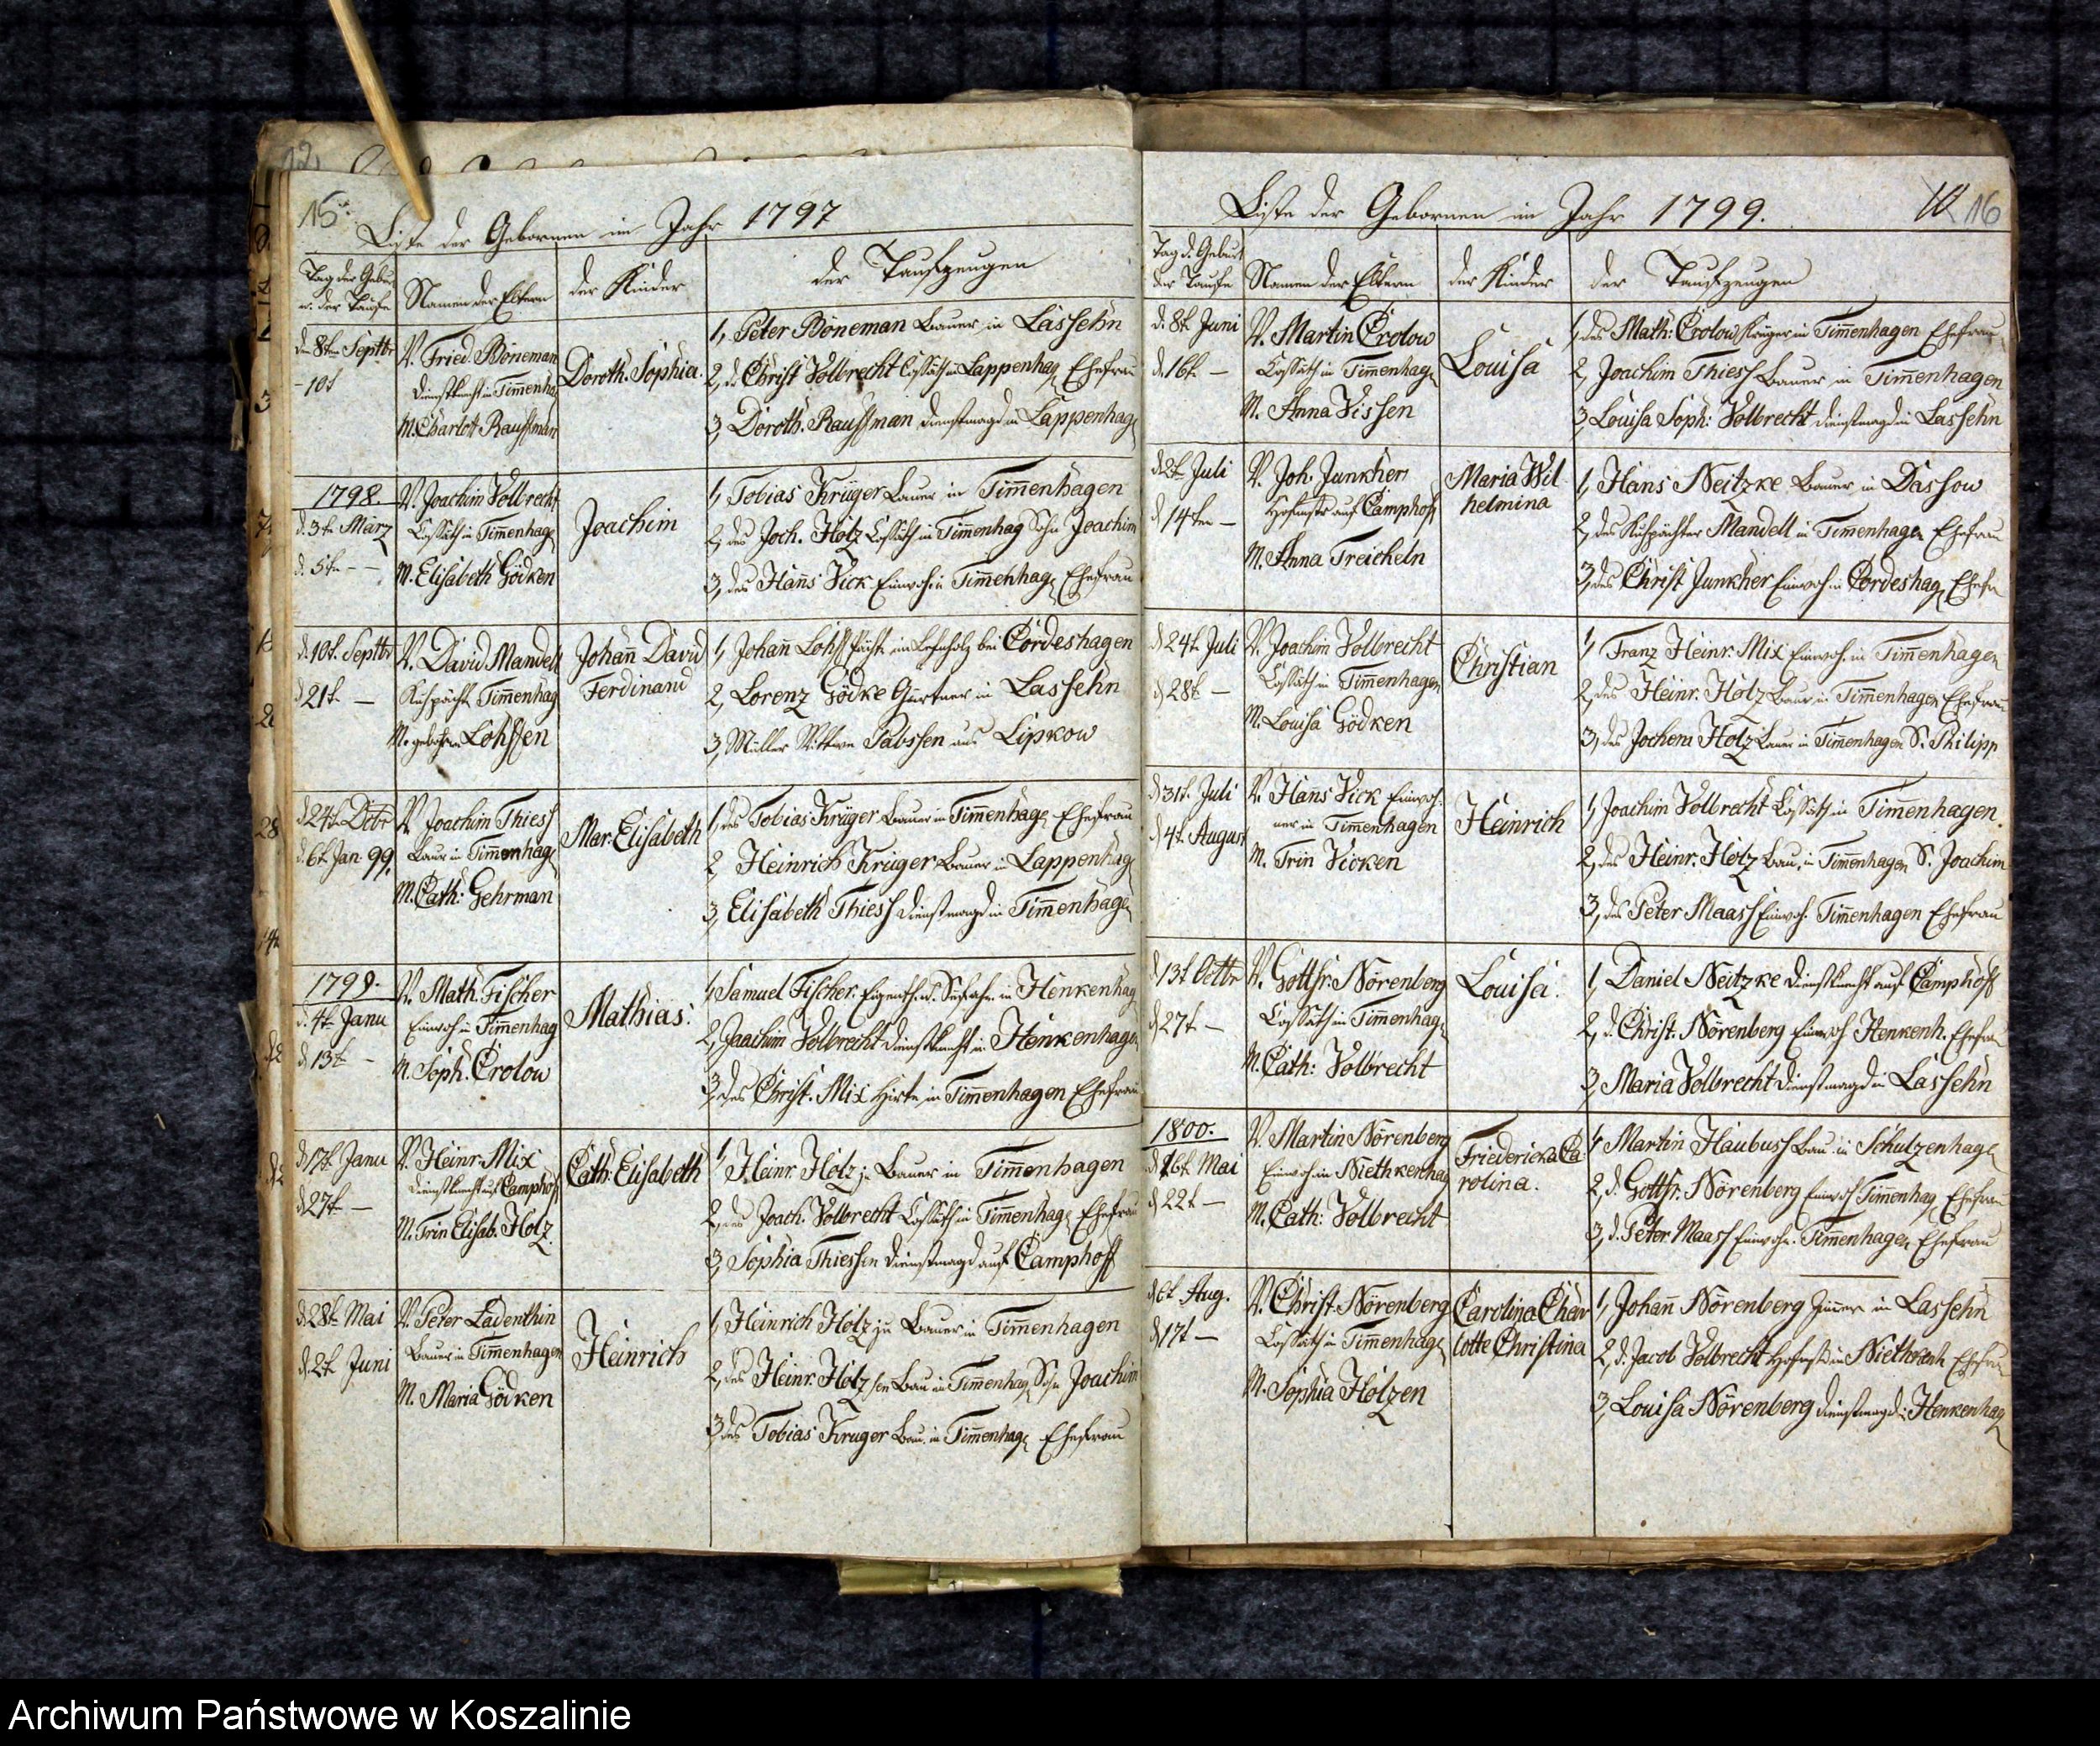 15.
Liste der Gebornen im Jahr 1797
Tag der Geburt
u. der Taufe
Namen der Eltern
der Kinder
der Taufzeugen
den 8ten Septbr
- 10t
V. Fried. Böneman
Dienstknecht in Timmenha
M. Charlott Rauffman
Doroth. Sophia.
1, Peter Böneman Bauer in Lassehn
2, d. Christ Volbrecht Cossäth in Lappenhag Ehefrau
3, Doroth. Rauffman Dienstmagd in Lappenhag
1798.
d. 3t März
d. 5tn -
V. Joachim Volbrecht
Cossäth in Timmenhag
M. Elisabeth Gödken
Joachim
1, Tobias Krüger Bauer in Timmenhagen
2, des Joch. Holz Cossäth in Timmenhag Sohn Joachim
3, des Hanns Vick Einwoh in Timmenhag Ehefrau
d. 10t. Septbr
d 21t -
V. David Mandell
Kuhpächt Timmenhag
M. gebohrn Lohffen
Johann David
Ferdinand
1, Johann Lohff Pächt im Lehnholz bei Cordeshagen
2, Lorenz Gödke Gärtner in Lassehn
3, Müller Wittwe Pabssen aus Lipkow
d 24t. Dcbr
d. 6t. Jan. 99.
V. Joachim Thiess
Bauer in Timmenhag
M. Cath: Gehrman
Mar: Elisabeth
1, des Tobias Krüger Bauer in Timmenhage Ehefrau
2, Heinrich Krüger Bauer in Lappenhag
3, Elisabeth Thiess Dienstmagd in Timmenhage
1799.
d. 4t Janu
d 13t -
V. Math. Fischer
Einwoh in Timmenhag
M. Soph. Crolow
Mathias:
1, Samuel Fischer Eigenth. u. Seefahr. in Henkenhag
2, Joachim Volbrecht Dienstknecht in Henkenhage
3, des Christ. Mix Hirte in Timmenhagen Ehefrau
d 17t Janu
d 27t -
V. Heinr. Mix
Dienstknecht auf Camphof
M. Trin Elisab. Holz
Cath: Elisabeth
1, Heinr. Holz j. Bauer in Timmenhagen
2, des Joach. Volbrecht Cossäth in Timmenhage Ehefrau
3, Sophia Thiessen Dienstmagd auf Camphoff
d 28t Mai
d. 2t Juni
V. Peter Ladenthin
Bauer in Timmenhagen
M. Maria Gödken
Heinrich
1, Heinrich Holz ju Bauer in Timmenhagen
2, des Heinr. Holz sen Bau in Timmenhag Sohn Joachim
3, des Tobias Kruger Bau. in Timmenhage Ehefrau
Liste der Gebornen im Jahr 1799.
16
Tag d. Geburt
der Taufe
Namen der Eltern
der Kinder
der Taufzeugen
d. 8t Juni
d. 16t -
V. Martin Crolow
Cossäth in Timmenhage
M. Anna Vissen
Louisa
1, des Math: Crolow Krüger in Timmenhagen Ehefrau
2, Joachim Thiess Bauer in Timmenhagen
3, Louisa Soph: Volbrecht Dienstmagd in Lassehn
d 2t Juli
d 14tn -
V. Joh. Junkher
Hofmstr auf Camphoff
M. Anna Treicheln
Maria Wil
helmina
1, Hans Neitzke Bauer in Dassow
2, des Kuhpächter Mandell in Timmenhagen Ehefrau
3, des Christ Junkher Einwoh. in Cordeshag Ehefr
d 24t Juli
d 28t -
V. Joachim Volbrecht
Cossäth in Timmenhagen
M. Louisa Gödken
Christian
1, Franz Heinr. Mix Einwoh. in Timmenhagen
2, des Heinr. Holz Bauer in Timmenhagen Ehefrau
3, des Jochem Holz Bauer in Timmenhagen S. Philipp
d 31t. Juli
d 4t. August
V. Hanns Vick Einwoh
ner in Timmenhagen
M. Trin Vicken
Heinrich
1, Joachim Volbrecht Cossäth in Timmenhagen.
2, des Heinr: Holz Bau. in Timmenhagen S. Joachim
3, des Peter Maass Einwoh. Timmenhagen Ehefrau
d 13t Octbr
d 27t -
V. Gottfr. Nörenberg
Cossäth in Timmenhag
M. Cath: Volbrecht
Louisa.
1, Daniel Neitzke Dienstknecht auf Camphoff
2, d. Christ. Nörenberg Einwoh Henkenh. Ehefrau
3, Maria Volbrecht Dienstmagd in Lassehn
1800.
d 16t Mai
d 22t -
V. Martin Nörenberg
Einwoh. in Niethkenhag
M. Cath: Volbrecht
Friedericka Ca
rolina.
1, Martin Haubuss Bau. in Schulzenhage
2, d. Gottfr. Nörenberg Einwoh Timmenhag Ehefrau
3, d. Peter Maass Einwohn. Timmenhagen Ehefrau
d 6t Aug.
d 17t -
V. Christ. Nörenberg
Cossäth in Timmenhage
M. Sophia Holzen
Carolina Char
lotte Christina
1, Johann Nörenberg Zimmer in Lassehn
2, d. Jacob Volbrecht Hofmstr in Niethkenh Ehefrau
3, Louisa Nörenberg Dienstmagd i. Henkenhag
Archiwum Państwowe w Koszalinie